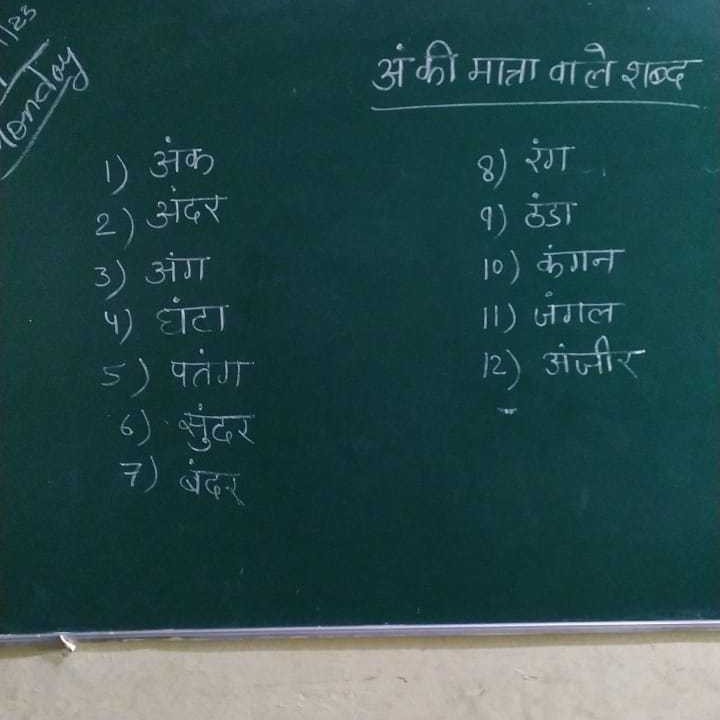 /23
Monday
अं की मात्रा वाले शब्द
1) अंक
2) अंदर
3) अंग
4) घंटा
5) पतंग
6) सुंदर
7) बंदर
8) रंग
9) ठंडा
10) कंगन
11) जंगल
12) अंजीर